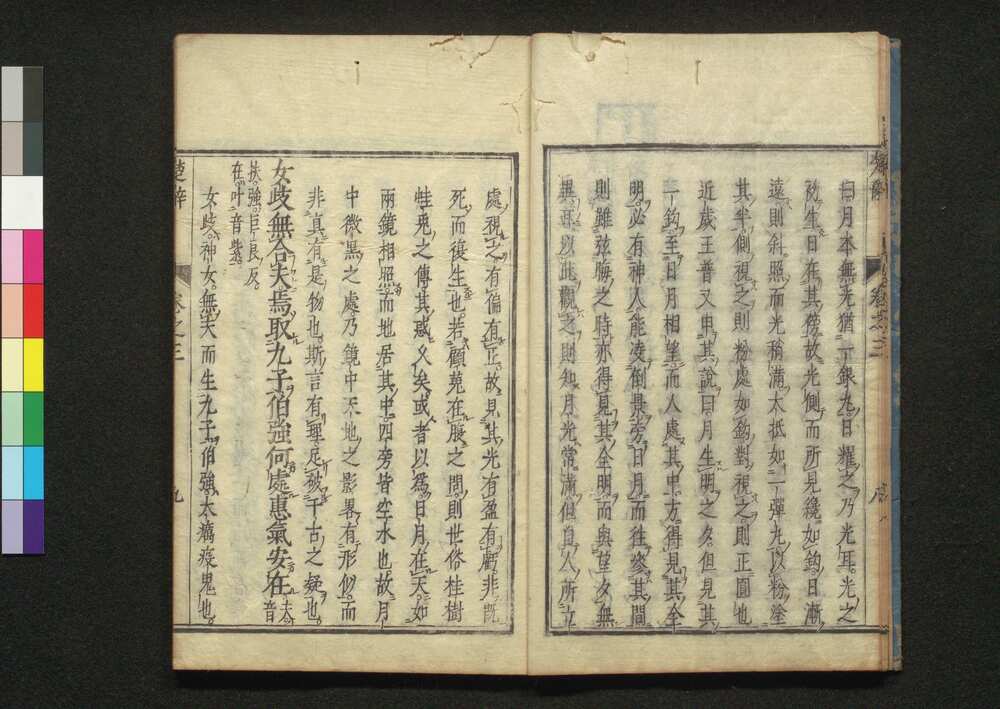 日月本無光猶一銀丸日耀之乃光耳光之
初生日在其傍故光側而所見纔如鈎日漸
遠則斜照而光稍滿大抵如一彈丸以粉塗
其半側視之則粉處如鈎對視之則正圓也
近歲王普又申其說曰月生明之夕但見其
一鈎至日月相望而人處其中方得見其全
明必有神人能凌倒景旁日月而往參其間
則雖弦晦之時亦得見其全明而與望夕無
異耳以此觀之則知月光常滿但自人所立
處視之有偏有正故見其光有盈有虧非既
死而復生也若顧菟在腹之間則世俗桂樹
蛙兎之傳其惑乆矣或者以爲日月在天如
兩鏡相照而地居其中四旁皆空水也故月
中微黑之處乃鏡中天地之影畧有形似而
非真有是物也斯言有理足破千古之疑也
女歧無合夫焉取九子伯強何處惠氣安在夫音
扶強巨良反
在叶音紫
女歧神女無夫而生九子伯強大癘疫鬼也
楚辭
卷之三
九